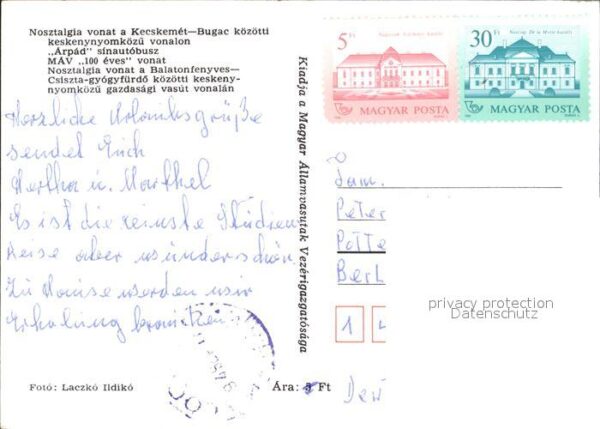 Nosztalgia vonat a Kecskemét—Bugac közötti
keskenynyomközű vonalon
„Árpád" sínautóbusz
MÁV „100 éves" vonat
Nosztalgia vonat a Balatonfenyves—
Csiszta-gyógyfürdő közötti keskeny-
nyomközű gazdasági vasút vonalán
Herzliche Urlaubsgrüße
sendet Euch
Hertha u.
Es ist die reinste Studien
Reise aber wunderschön
Zu Hause werden wir
Erholung brauchen
Kiadja a Magyar Államvasutak Vezérigazgatósága
Fotó: Laczkó Ildikó
Ára: Ft
5 Ft
MAGYAR POSTA
30 Ft
MAGYAR POSTA
Fam.
Peter
Potte
Berl
privacy protection
Datenschutz
1